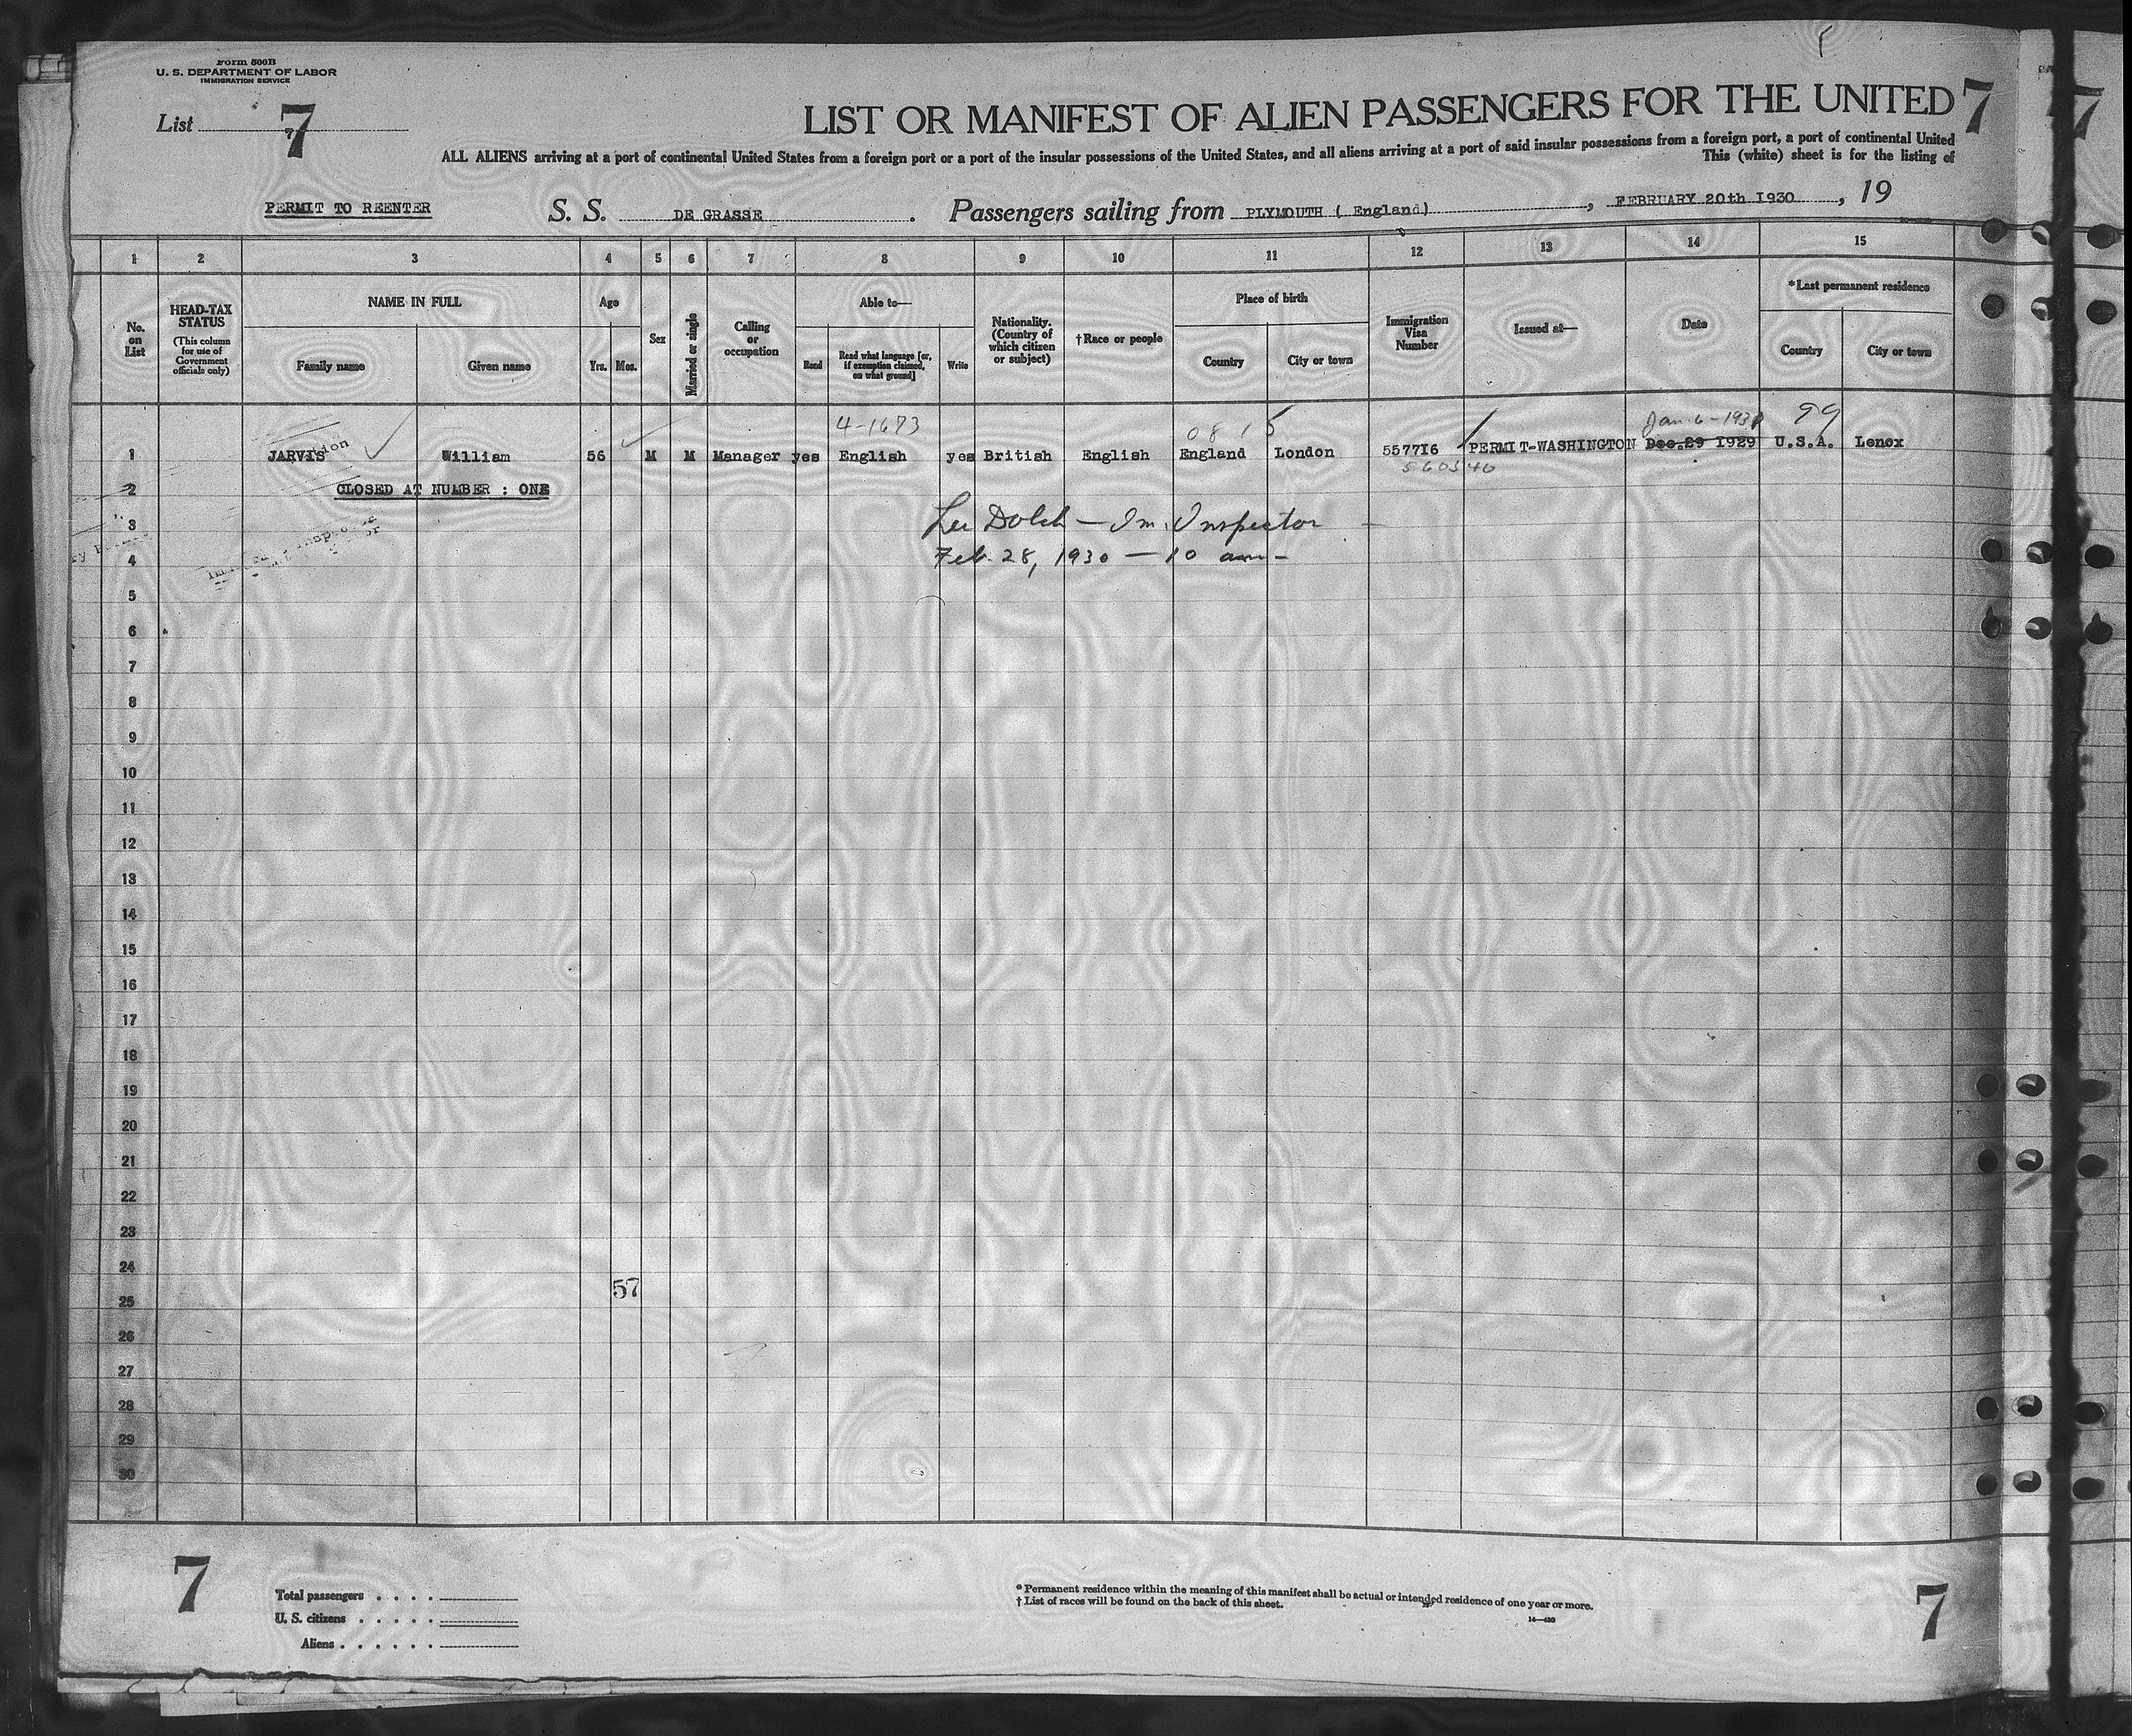 Form 500B
U. S. DEPARTMENT OF LABOR
IMMIGRATION SERVICE
List 7
7
LIST OR MANIFEST OF ALIEN PASSENGERS FOR THE UNITED 7
7
ALL ALIENS arriving at a port of continental United States from a foreign port or a port of the insular possessions of the United States, and all aliens arriving at a port of said insular possessions from a foreign port, a port of continental United
This (white) sheet is for the listing of
PERMIT TO REENTER S. S. DE GRASSE . Passengers sailing from PLYMOUTH ( England) , FEBRUARY 20th 1930 , 19
1 2 3 4 5 6 7 8 9 10 11 12 13 14 15
No. on List
HEAD-TAX STATUS (This column for use of Government officials only)
NAME IN FULL
Family name Given name
Age
Yrs. Mos.
Sex
Married or single
Calling or occupation
Able to—
Read Read what language [or, if exemption claimed, on what ground] Write
Nationality. (Country of which citizen or subject)
†Race or people
Place of birth
Country City or town
Immigration Visa Number
Issued at—
Date
*Last permanent residence
Country City or town
4-1673 Jan. 6-1930 99
1 JARVIS William 56 M M Manager yes English yes British English England London 557716 PERMIT-WASHINGTON Dec.29 1929 U.S.A. Lenox
560340
2 CLOSED AT NUMBER : ONE
3 Lee Dolch — Im. Inspector
4 Feb. 28, 1930 — 10 am –
5
6
7
8
9
10
11
12
13
14
15
16
17
18
19
20
21
22
23
24
57
25
26
27
28
29
30
7
Total passengers
U. S. citizens
Aliens
* Permanent residence within the meaning of this manifest shall be actual or intended residence of one year or more.
† List of races will be found on the back of this sheet.
14—430
7